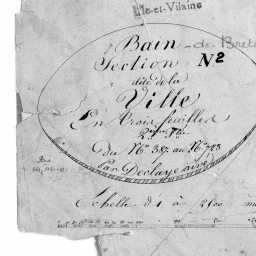 Ille-et-Vilaine
Bain - de Bret
Section N2
dite de la
Ville
En trois feuilles
2eme Flle
du No 387 au No 723
Par Deelaye ainé
Echelle d 1 à 2500 m